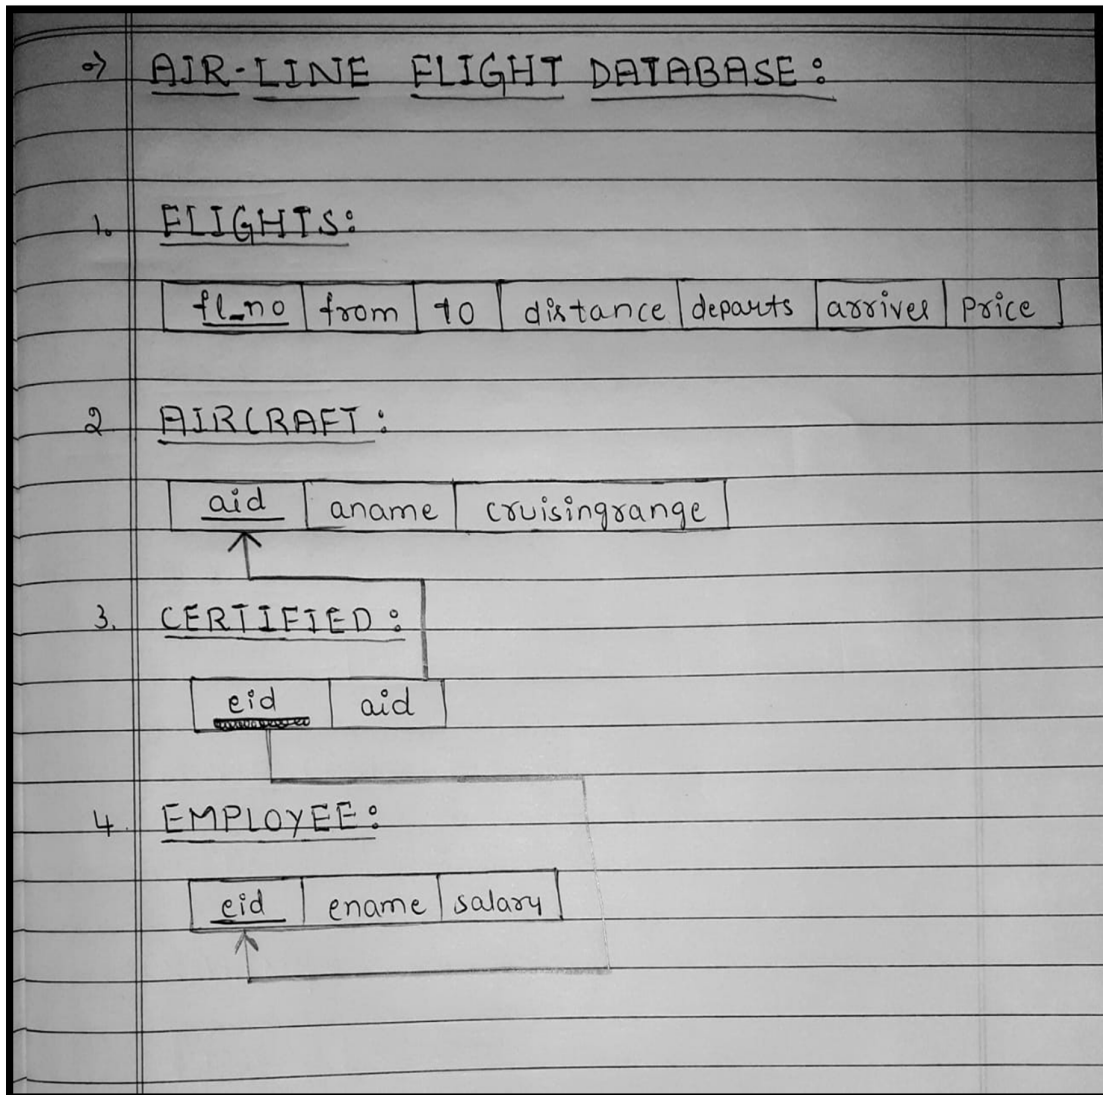 => AIR-LINE FLIGHT DATABASE:
1. FLIGHTS:
fl_no from to distance departs arrives Price
2 AIRCRAFT:
aid aname cruisingrange
3. CERTIFIED:
eid aid
4. EMPLOYEE:
eid ename salary